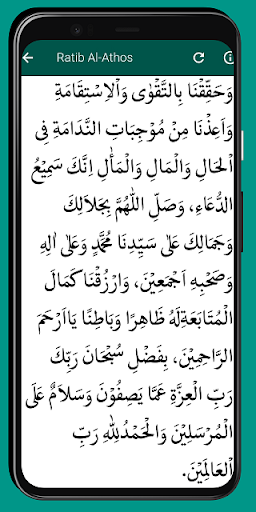 Ratib Al-Athos
وَحَقِّقْنَا بِالتَّقْوٰى وَاْلاِسْتِقَامَةِ
وَاَعِذْنَا مِنْ مُوْجِبَاتِ النَّدَامَةِ فِى
اْلحَالِ وَالْمَالِ وَالْمَأٰلِ اِنَّكَ سَمِيْعُ
الدُّعَاءِ، وَصَلِّ اللّٰهُمَّ بِجَلَالِكَ
وَجَمَالِكَ عَلىٰ سَيِّدِنَا مُحَمَّدٍ وَعَلىٰ اٰلِهِ
وَصَحْبِهِ اَجْمَعِيْنَ، وَارْزُقْنَا كَمَالَ
الْمُتَابَعَةِلَهُ ظَاهِرًا وَبَاطِنًا يَااَرْحَمَ
الرَّاحِمِيْنَ، بِفَضْلِ سُبْحَانَ رَبِّكَ
رَبِّ الْعِزَّةِ عَمَّا يَصِفُوْنَ وَسَلاَمٌ عَلَى
الْمُرْسَلِيْنَ وَالْحَمْدُلِلّٰهِ رَبِّ
اْلعَالَمِيْنَ.